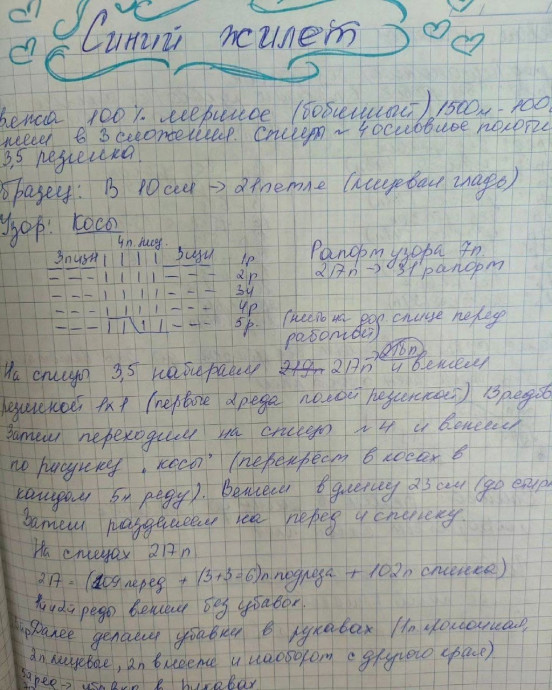 Синий жилет
100% меринос (бобинный) 1500м - 100
в 3 сложения. Спицы № 4 основное полотн
3,5 резинка.
бразец: В 10 см → 21 петле (лицевая гладь)
Узор: Косы
4п. лиц.
3п изн | | | | 3 изн 1р
– – – | | | | – – – 2р
– – – | | | | – – – 3ч
– – – | | | | – – – 4р
– – – – – – 5р.
Рапорт узора 7п.
217п → 31 рапорт
(нить на доп спице перед
работой)
На спицы 3,5 набираем 219п 217п → 216п и вяжем
резинкой 1х1 (первые 2 ряда полой резинкой) 13 рядов
Затем переходим на спицы № 4 и вяжем
по рисунку "косы" (перекрест в косах в
каждом 5м ряду). Вяжем в длину 23 см (до
Затем разделяем на перед и спинку
На спицах 217п
217 = (109 перед + (3+3=6)п подреза + 102п спинка)
ряды вяжем без убавок.
Далее делаем убавки в рукавах (1п кромочная,
2п лицевые, 2п вместе и наоборот с другого края)
убавка в рукавах